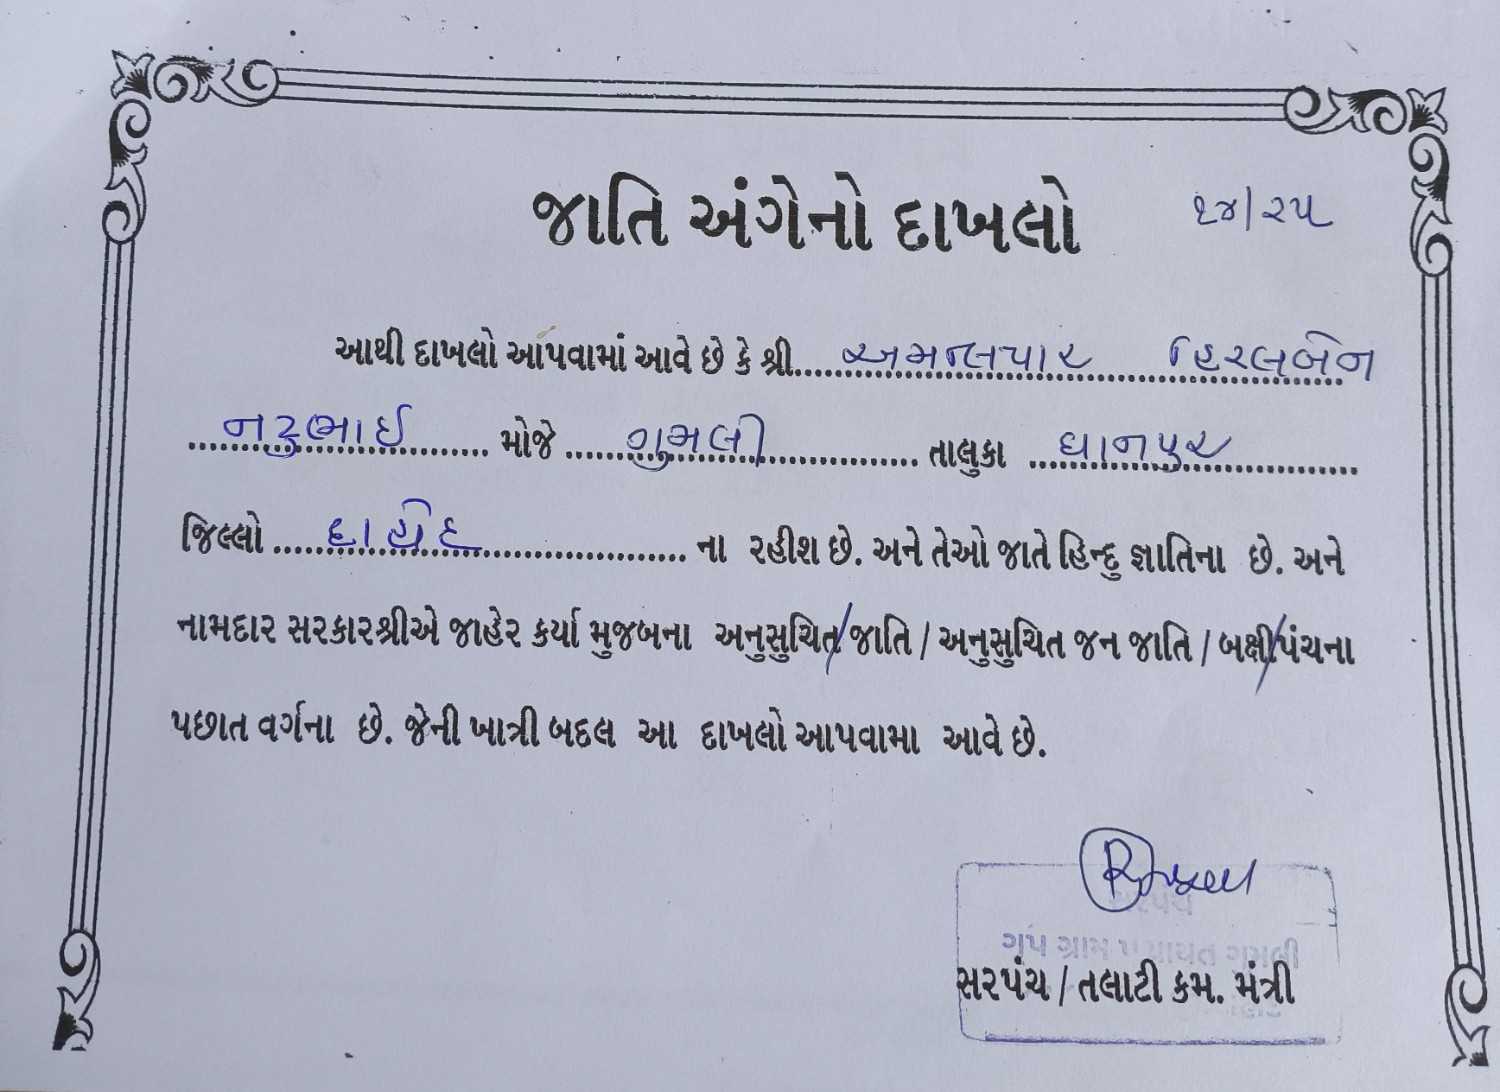 જાતિ અંગેનો દાખલો ૧૪/૨૫
આથી દાખલો આપવામાં આવે છે કે શ્રી..... અમલીયાર હિરલબેન
..... નટુભાઈ ..... મોજે ..... ગુમલી ..... તાલુકા ..... ધાનપુર .....
જિલ્લો ..... દાહોદ ..... ના રહીશ છે. અને તેઓ જાતે હિન્દુ જ્ઞાતિના છે. અને
નામદાર સરકારશ્રીએ જાહેર કર્યા મુજબના અનુસુચિત/જાતિ / અનુસુચિત જન જાતિ / બક્ષીપંચના
પછાત વર્ગના છે. જેની ખાત્રી બદલ આ દાખલો આપવામા આવે છે.
સરપંચ
ગૃપ ગ્રામ પંચાયત ગુમલી
સરપંચ / તલાટી કમ. મંત્રી